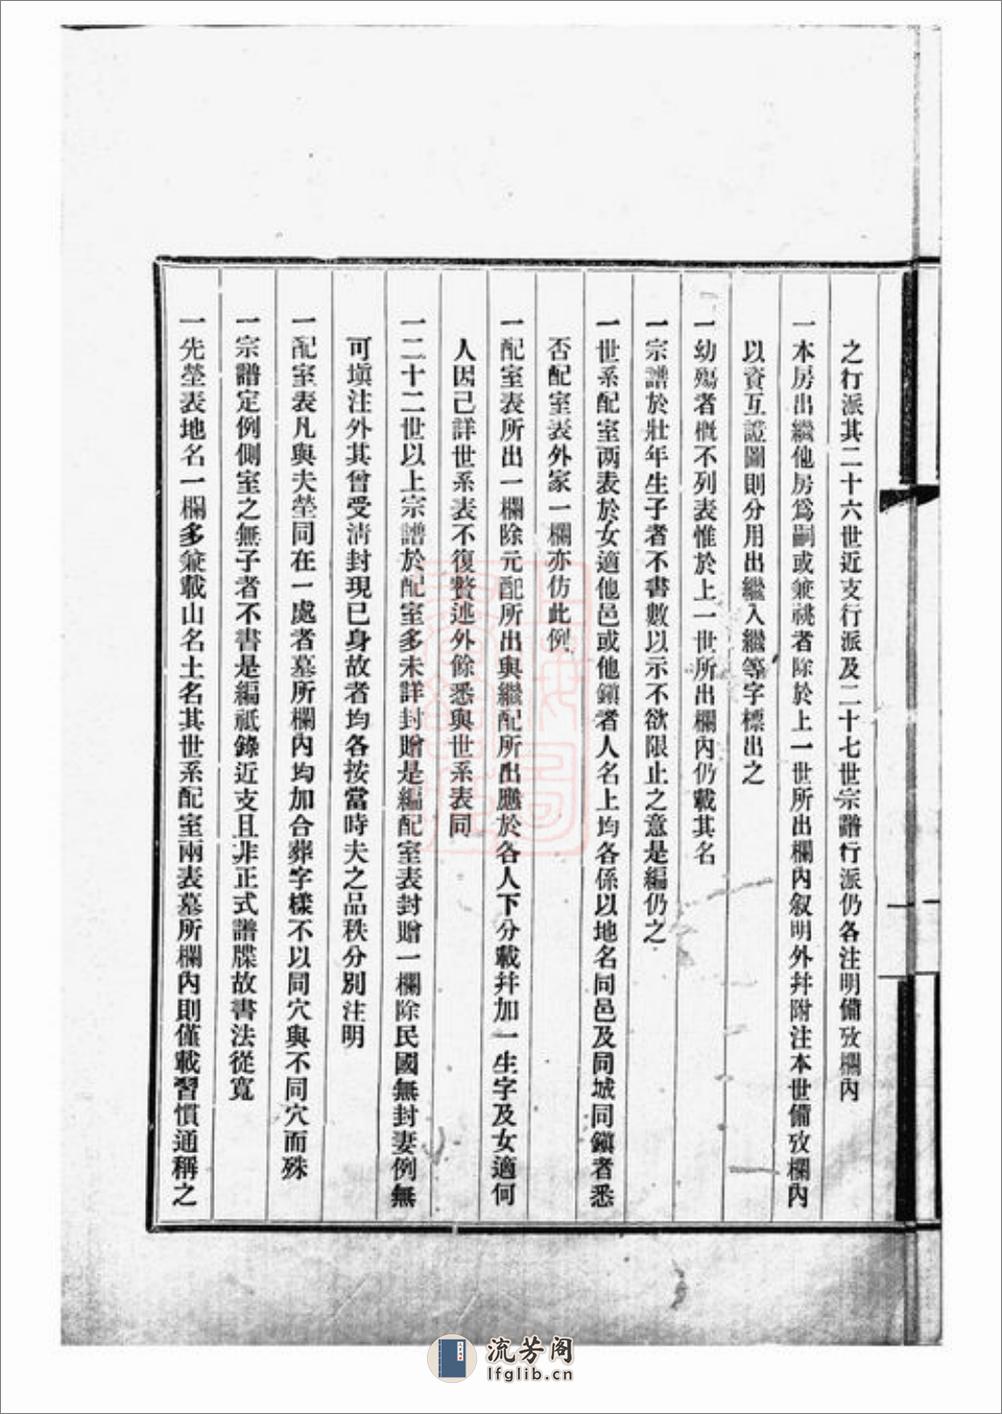 之行派其二十六世近支行派及二十七世宗譜行派仍各注明備攷欄內
一本房出繼他房爲嗣或兼祧者除於上一世所出欄內叙明外幷附注本世備攷欄內
以資互證圖則分用出繼入繼等字標出之
一幼殤者槪不列表惟於上一世所出欄內仍載其名
一宗譜於壯年生子者不書數以示不欲限止之意是編仍之
一世系配室两表於女適他邑或他鎭者人名上均各係以地名同邑及同城同鎭者悉
否配室表外家一欄亦仿此例
一配室表所出一欄除元配所出與繼配所出應於各人下分載幷加一生字及女適何
人因已詳世系表不復贅述外餘悉與世系表同
一二十二世以上宗譜於配室多未詳封贈是編配室表封贈一欄除民國無封妻例無
可塡注外其曾受淸封現已身故者均各按當時夫之品秩分別注明
一配室表凡與夫塋同在一處者墓所欄內均加合葬字樣不以同穴與不同穴而殊
一宗譜定例側室之無子者不書是編祇錄近支且非正式譜牒故書法從寬
一先塋表地名一欄多兼載山名土名其世系配室兩表墓所欄內則僅載習慣通稱之
流芳阁
lfglib.cn